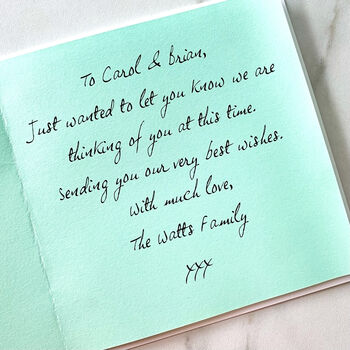 To Carol & Brian,
Just wanted to let you know we are
thinking of you at this time.
Sending you our very best wishes.
With much love,
The Watts Family
xxx